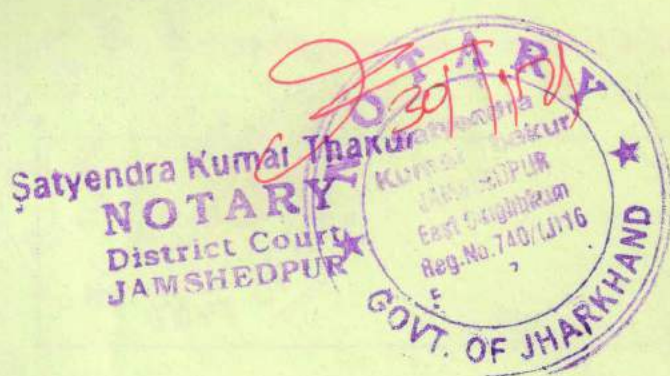 Satyendra Kumar Thakur
NOTARY
District Court
JAMSHEDPUR
NOTARY
Satyendra
Kumar Thakur
JAMSHEDPUR
East Singhbhum
Reg.No.740/
GOVT. OF JHARKHAND
30/1/